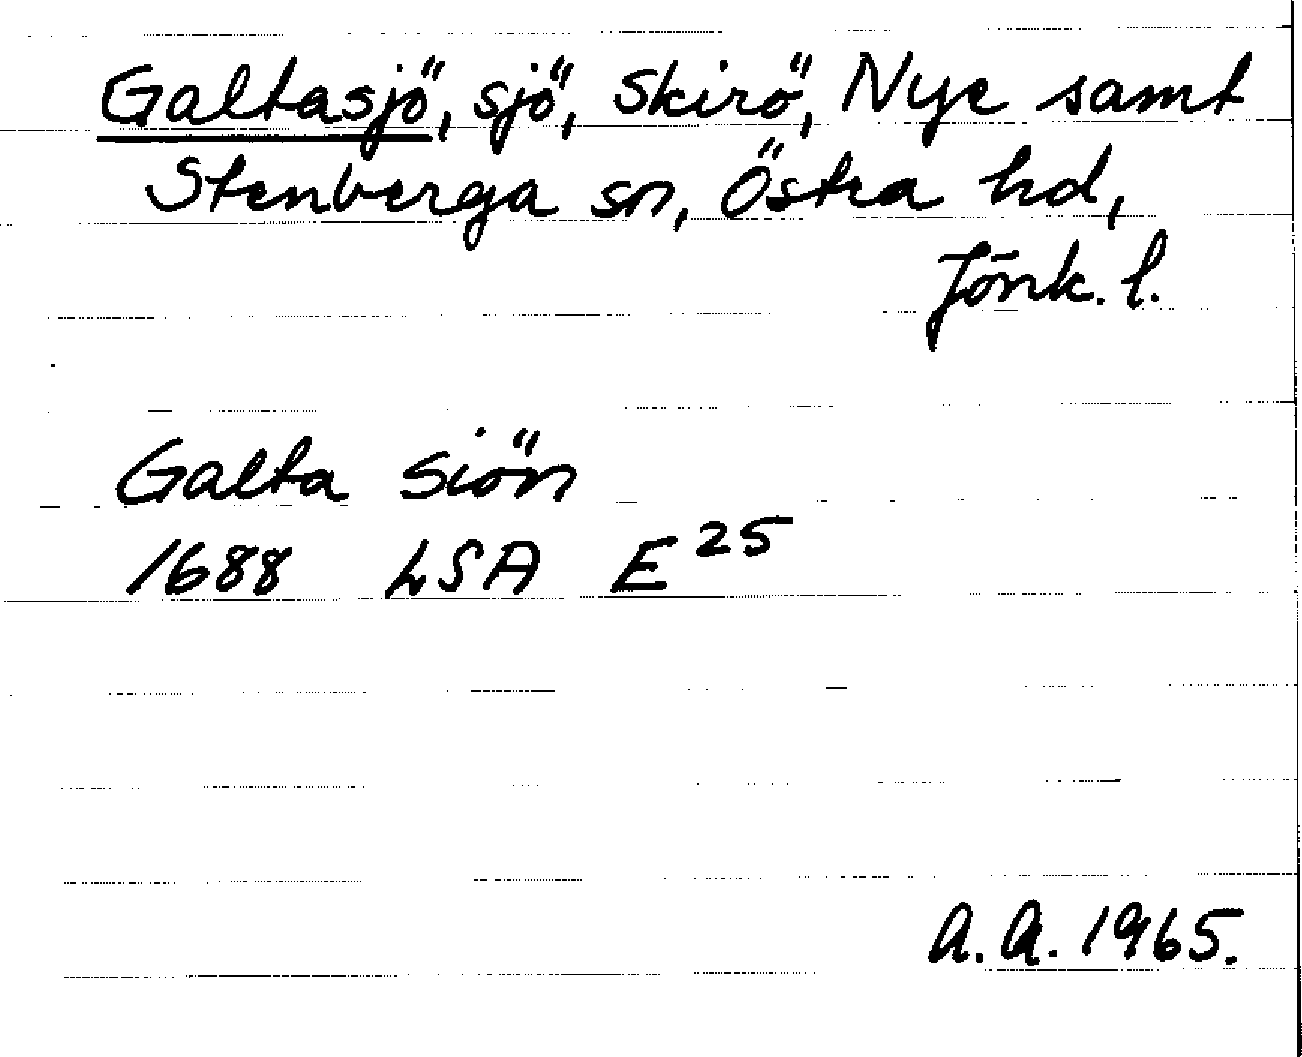 Galtasjö, sjö, Skirö, Nye samt
Stenberga sn, Östra hd,
Jönk. l.
Galta Siön
1688 LSA E 25
A.A. 1965.